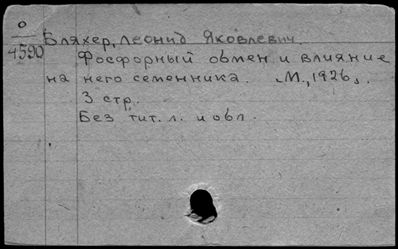 О
4590
Бляхер, Леонид Яковлевич.
Фосфорный обмен и влияние
на него семенника. М., 1926.
3 стр.
Без тит. л. и обл.